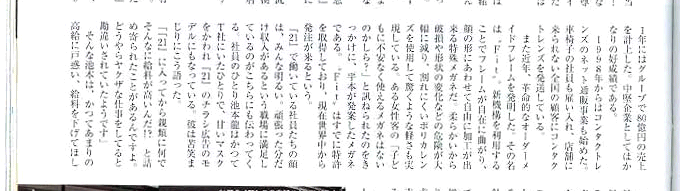 1年にはグループで80億円の売上
を計上した。中堅企業としてはか
なりの好業績である。
1998年からはコンタクトレ
ンズのネット通販事業も始めた。
車椅子の社員も雇い入れ、店舗に
来られない全国の顧客にコンタク
トレンズを発送している。
また近年、革命的なオーダーメ
イドフレームを発明した。その名
は、「Fit」。新機構を利用する
ことでフレームが自在に曲がり、
顔の形にあわせて自由に加工が出
来る特殊メガネだ。柔らかいから
破損や形状の変化などの危険が大
幅に減り、割れにくいポリカレン
ズを使用して驚くような軽さも実
現している。ある女性客の「子ど
もに不安なく使えるメガネはない
のかしら?」と訊ねられたのをき
っかけに、平本が発案したメガネ
である。「Fit」はすでに特許
を取得しており、現在世界中から
発注が来るという。
「21」で働いている社員たちの顔
は、みんな明るい。頑張った分だ
け収入があるという職場に満足し
ているのがこちらにも伝わってく
る。社員のひとり池本龍はかつて
T社にいたひとりで、甘いマスク
をかわれ「21」のチラシ広告のモ
デルにもなっている。彼は苦笑ま
じりにこう語った。
「「21」に入ってから親類に何で
そんなに給料が高いんだ!?と詰
め寄られたことがあるんですよ。
どうやらヤクザな仕事をしてると
勘違いされていたようです」
そんな池本は、かつてあまりの
高給に戸惑い、給料を下げてほし